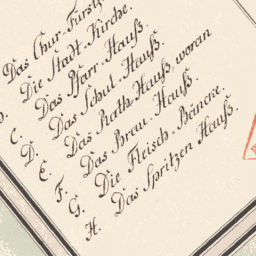 Das Chur-Fürstl
Die Stadt-Kirche.
C. Das Pfarr-Hauß
D. Das Schul-Hauß.
E. Das Rath-Hauß, woran
F. Das Brau-Hauß.
G. Die Fleisch-Bäncke.
H. Das Spritzen Hauß.